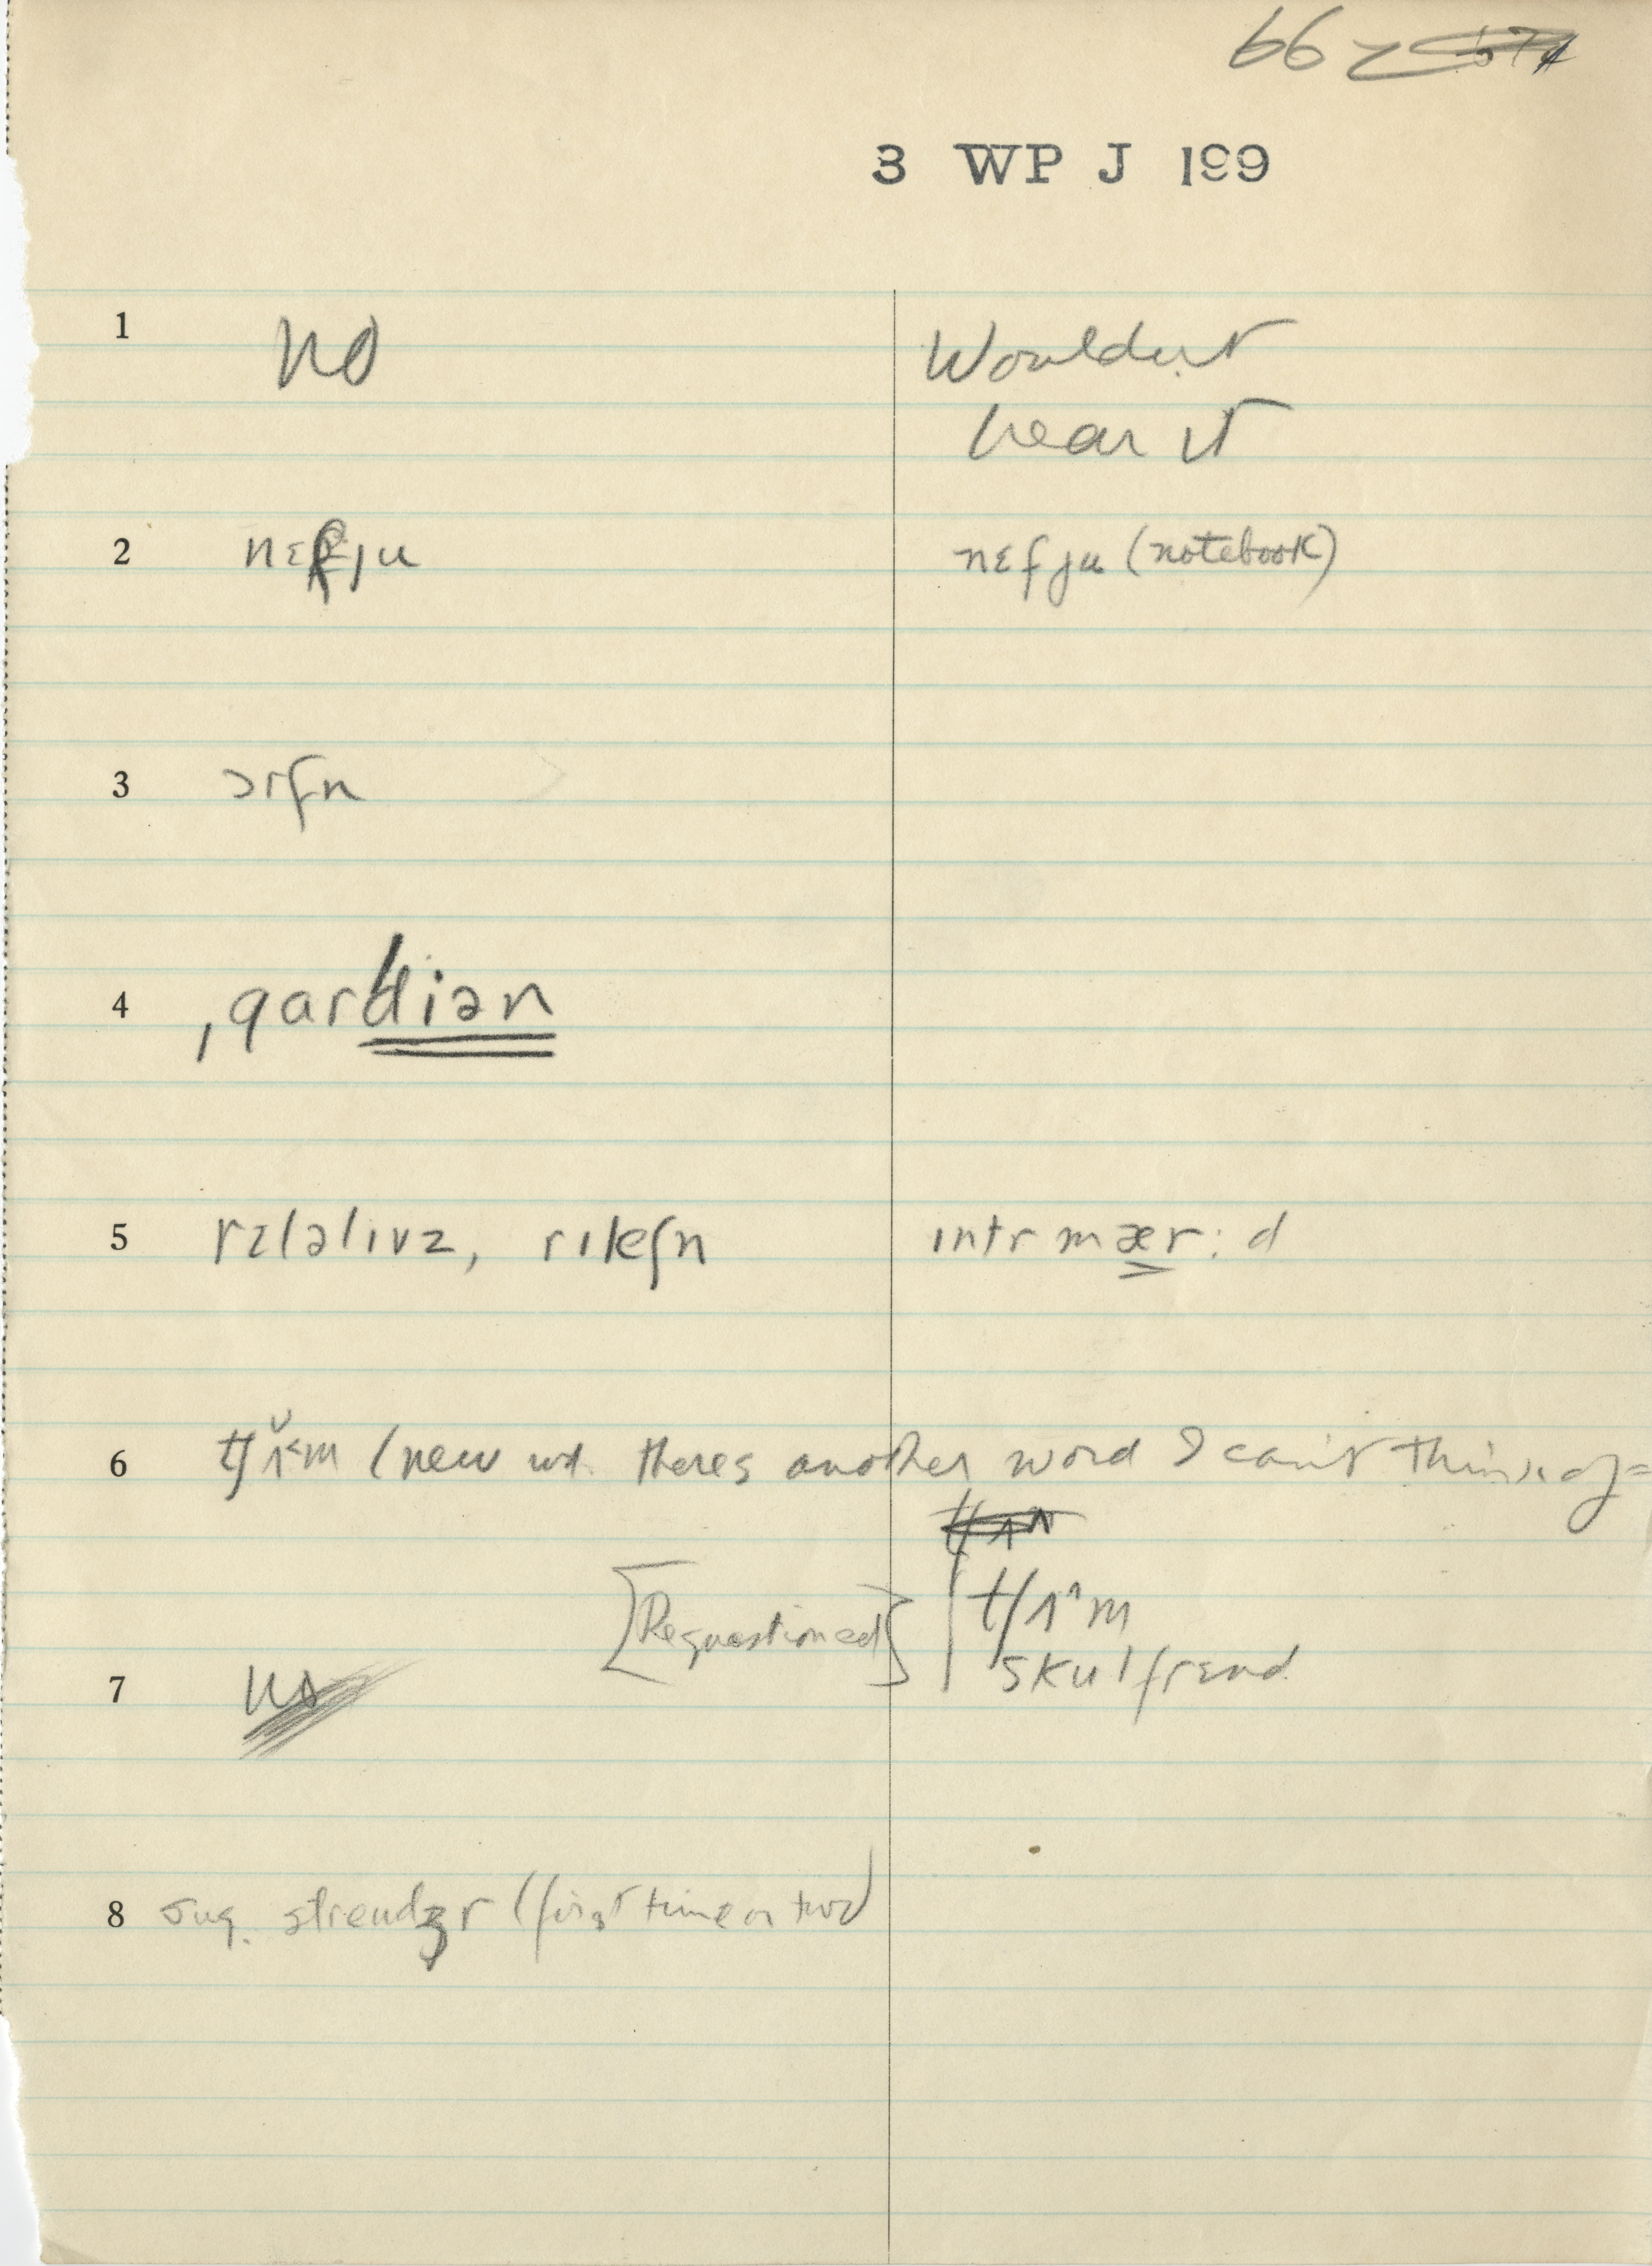 66
3 WP J 199
1 no Wouldn't
hear it
2 nɛfju nɛfju (notebook)
3 ɔrfn
4 ˌgardiən
5 rɛlətivz, rikeʃn intrmær:d
6 tʃʌ˅m (new wd. theres another word I can't think of=
[Requestioned] tʃʌ^m
skulfrend
7
8 sug. strendʒr (first time or two)